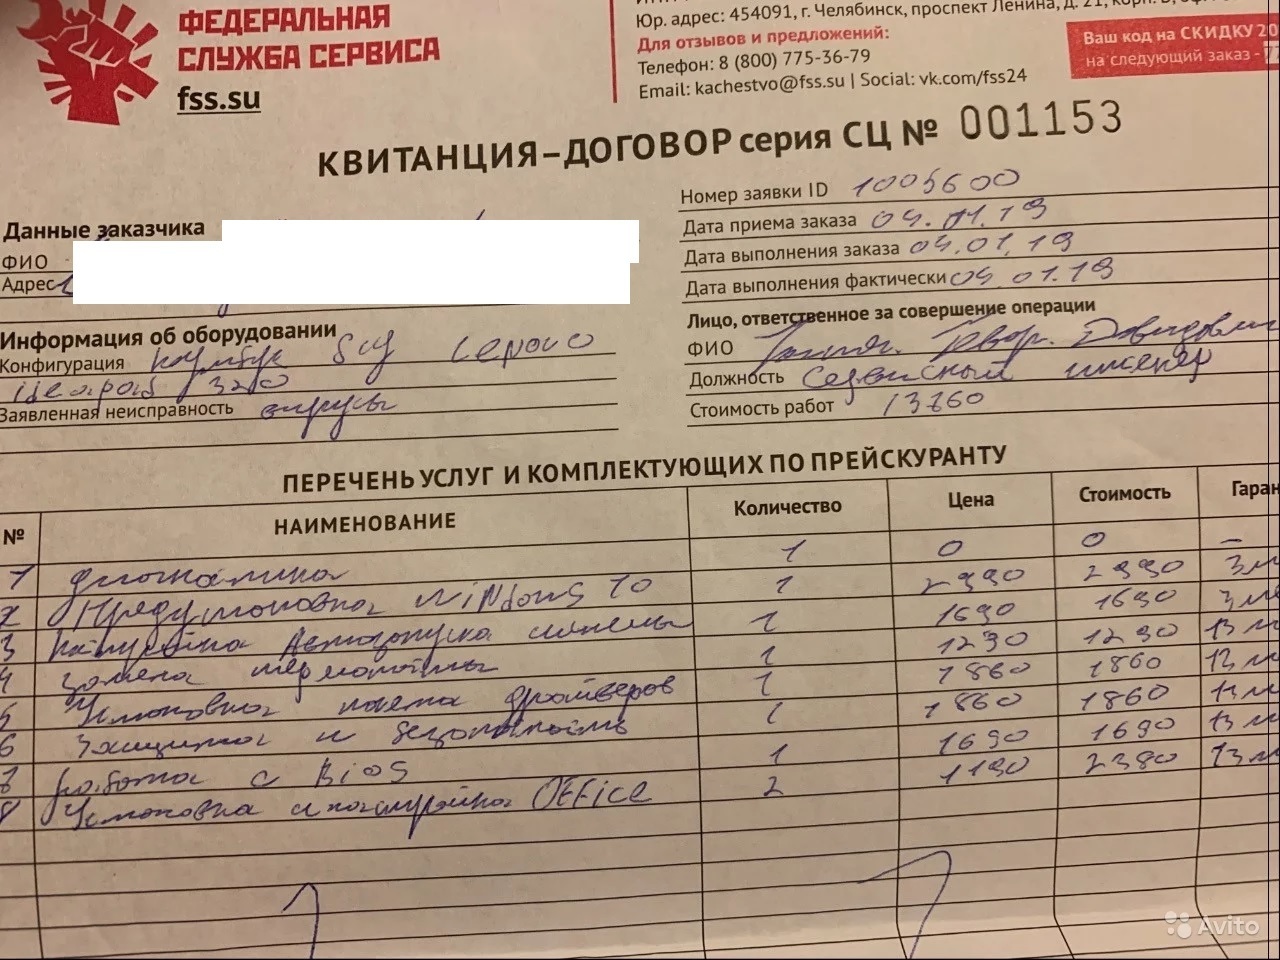 ФЕДЕРАЛЬНАЯ
СЛУЖБА СЕРВИСА
fss.su
Юр. адрес: 454091, г. Челябинск, проспект Ленина, д. 21, корп.
Для отзывов и предложений:
Телефон: 8 (800) 775-36-79
Email: kachestvo@fss.su | Social: vk.com/fss24
Ваш код на СКИДКУ 20
на следующий заказ -
КВИТАНЦИЯ–ДОГОВОР серия СЦ № 001153
Данные заказчика
ФИО
Адрес
Номер заявки ID 1005600
Дата приема заказа 04.01.19
Дата выполнения заказа 04.01.19
Дата выполнения фактически 04.01.19
Информация об оборудовании
Конфигурация ноутбук Б/у Lenovo
320
Заявленная неисправность вирусы
Лицо, ответственное за совершение операции
ФИО Давидович
Должность Сервисный инженер
Стоимость работ 13760
ПЕРЕЧЕНЬ УСЛУГ И КОМПЛЕКТУЮЩИХ ПО ПРЕЙСКУРАНТУ
№ НАИМЕНОВАНИЕ Количество Цена Стоимость Гаран
1 Диагностика 1 0 0 –
2 Предустановка Windows 10 1 2990 2990 3м
3 Настройка Автозапуска системы 1 1690 1690 3м
4 Замена термопасты 1 1290 1290 13м
5 Установка пакета драйверов 1 1860 1860 13м
6 Защита и безопасность 1 1860 1860 13м
7 Работа с BiOS 1 1690 1690 13м
8 Установка и настройка OFFice 2 1190 2380 13м
Avito